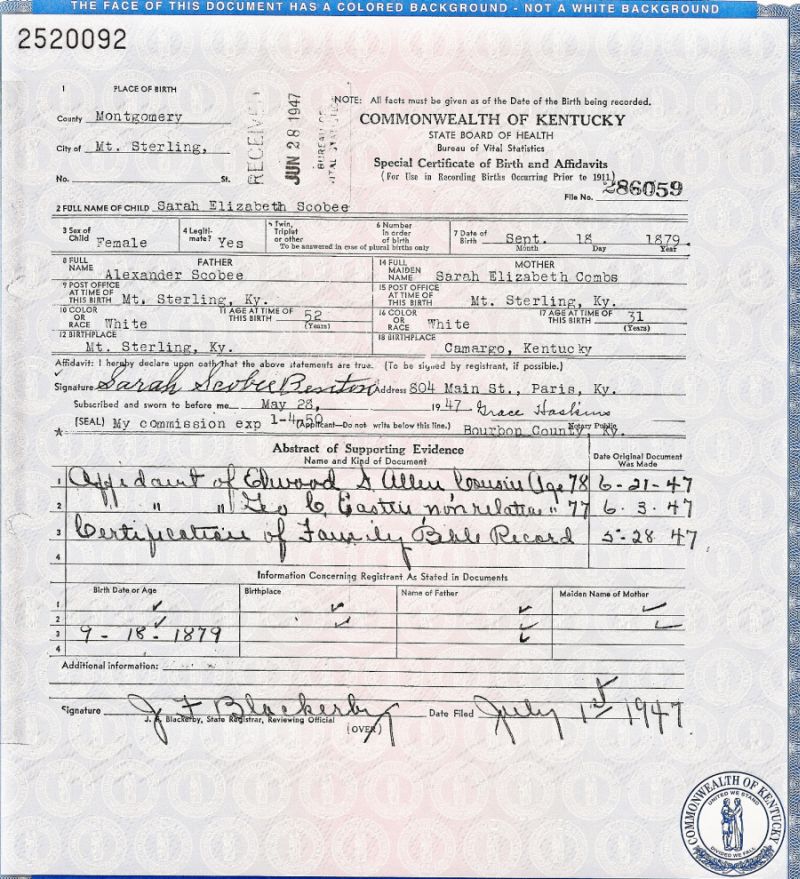 THE FACE OF THIS DOCUMENT HAS A COLORED BACKGROUND - NOT A WHITE BACKGROUND
2520092
1 PLACE OF BIRTH
County Montgomery
City of Mt. Sterling,
No. St.
RECEIVED
JUN 28 1947
BUREAU OF
VITAL
NOTE: All facts must be given as of the Date of the Birth being recorded.
COMMONWEALTH OF KENTUCKY
STATE BOARD OF HEALTH
Bureau of Vital Statistics
Special Certificate of Birth and Affidavits
(For Use in Recording Births Occurring Prior to 1911)
File No. 286059
2 FULL NAME OF CHILD Sarah Elizabeth Scobee
3 Sex of Child Female
4 Legitimate? Yes
5 Twin, Triplet or other
6 Number in order of birth
To be answered in case of plural births only
7 Date of Birth Sept. 18 1879.
Month Day Year
8 FULL NAME FATHER
Alexander Scobee
14 FULL MAIDEN NAME MOTHER
Sarah Elizabeth Combs
9 POST OFFICE AT TIME OF THIS BIRTH Mt. Sterling, Ky.
15 POST OFFICE AT TIME OF THIS BIRTH Mt. Sterling, Ky.
10 COLOR OR RACE White
11 AGE AT TIME OF THIS BIRTH 52 (Years)
16 COLOR OR RACE White
17 AGE AT TIME OF THIS BIRTH 31 (Years)
12 BIRTHPLACE Mt. Sterling, Ky.
18 BIRTHPLACE Camargo, Kentucky
Affidavit: I hereby declare upon oath that the above statements are true. (To be signed by registrant, if possible.)
Signature Sarah Scobee Benston Address 804 Main St., Paris, Ky.
Subscribed and sworn to before me May 28, 1947 Grace Haskins
Notary Public
(SEAL) My commission exp 1-4-50 (Applicant—Do not write below this line.) Bourbon County, Ky.
Abstract of Supporting Evidence
Name and Kind of Document
Date Original Document Was Made
1 Affidavit of Elwood S Allen Cousin Age 78 6-21-47
2 " " Geo C Eastin nonrelative " 77 6-3-47
3 Certification of Family Bible Record 5-28 47
4
Information Concerning Registrant As Stated in Documents
Birth Date or Age Birthplace Name of Father Maiden Name of Mother
1 ✓ ✓ ✓ ✓
2 ✓ ✓ ✓ ✓
3 9-18-1879 ✓
4
Additional information:
Signature J F Blackerby Date Filed July 1st 1947
J. F. Blackerby, State Registrar, Reviewing Official
(OVER)
COMMONWEALTH OF KENTUCKY
UNITED WE STAND
DIVIDED WE FALL